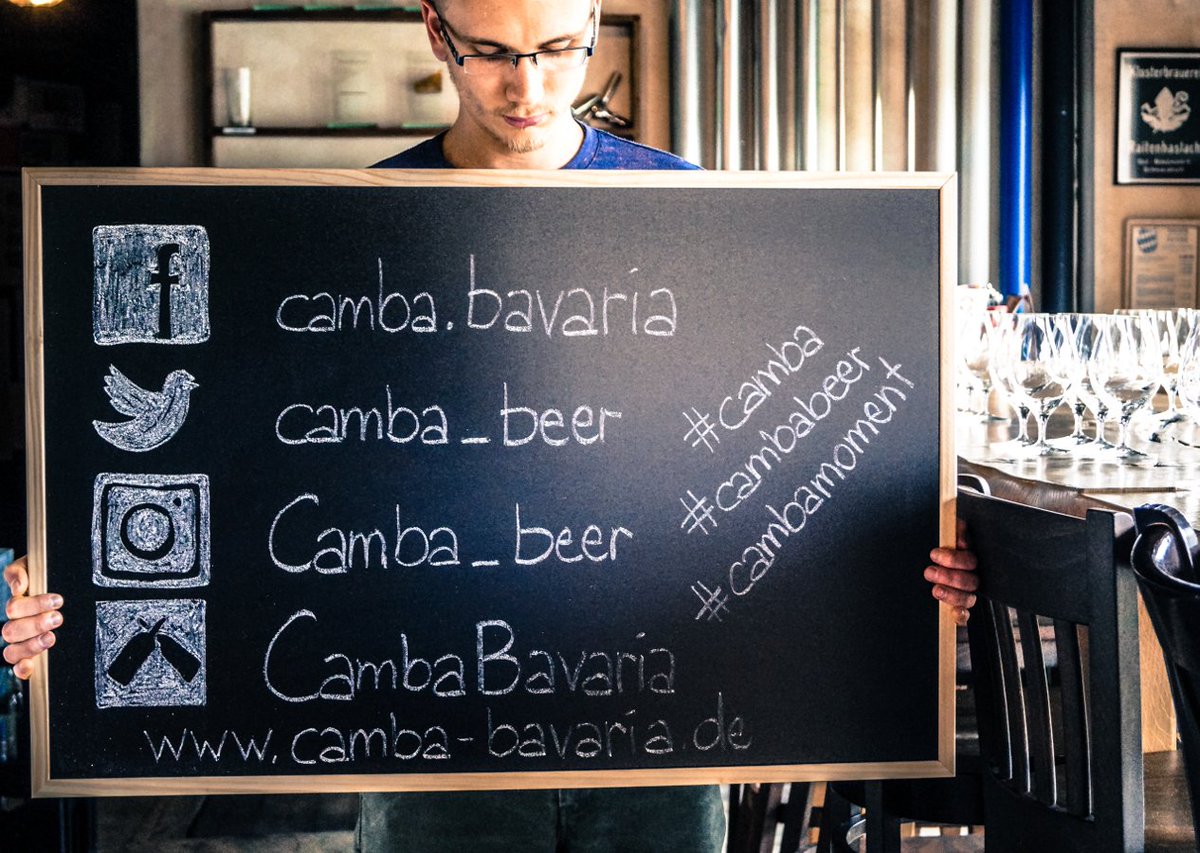 f
camba.bavaria
camba_beer
Camba_beer
CambaBavaria
www.camba-bavaria.de
#camba
#cambabeer
#cambamoment
Klosterbrauerei
Raitenhaslach